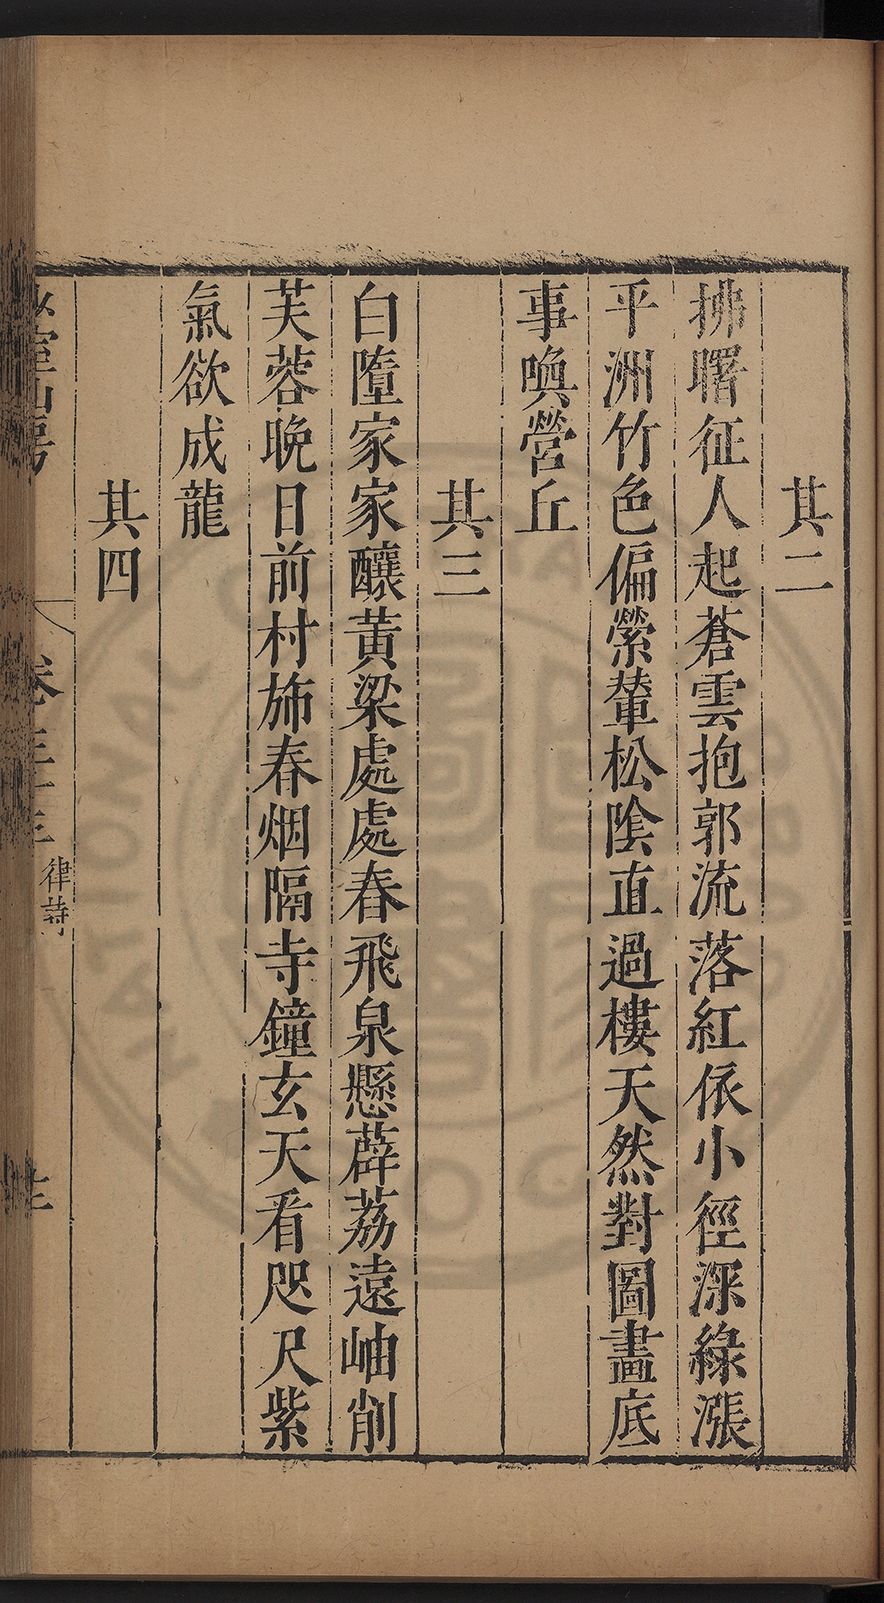 其二
拂曙征人起蒼雲抱郭流落紅依小徑深綠漲
平洲竹色偏縈輦松陰直過樓天然對圖畫底
事喚營丘
其三
白墮家家釀黃梁處處春飛泉懸薜荔遠岫削
芙蓉晚日前村斾春烟隔寺鐘玄天看咫尺紫
氣欲成龍
其四
室山房
卷三十三
律詩